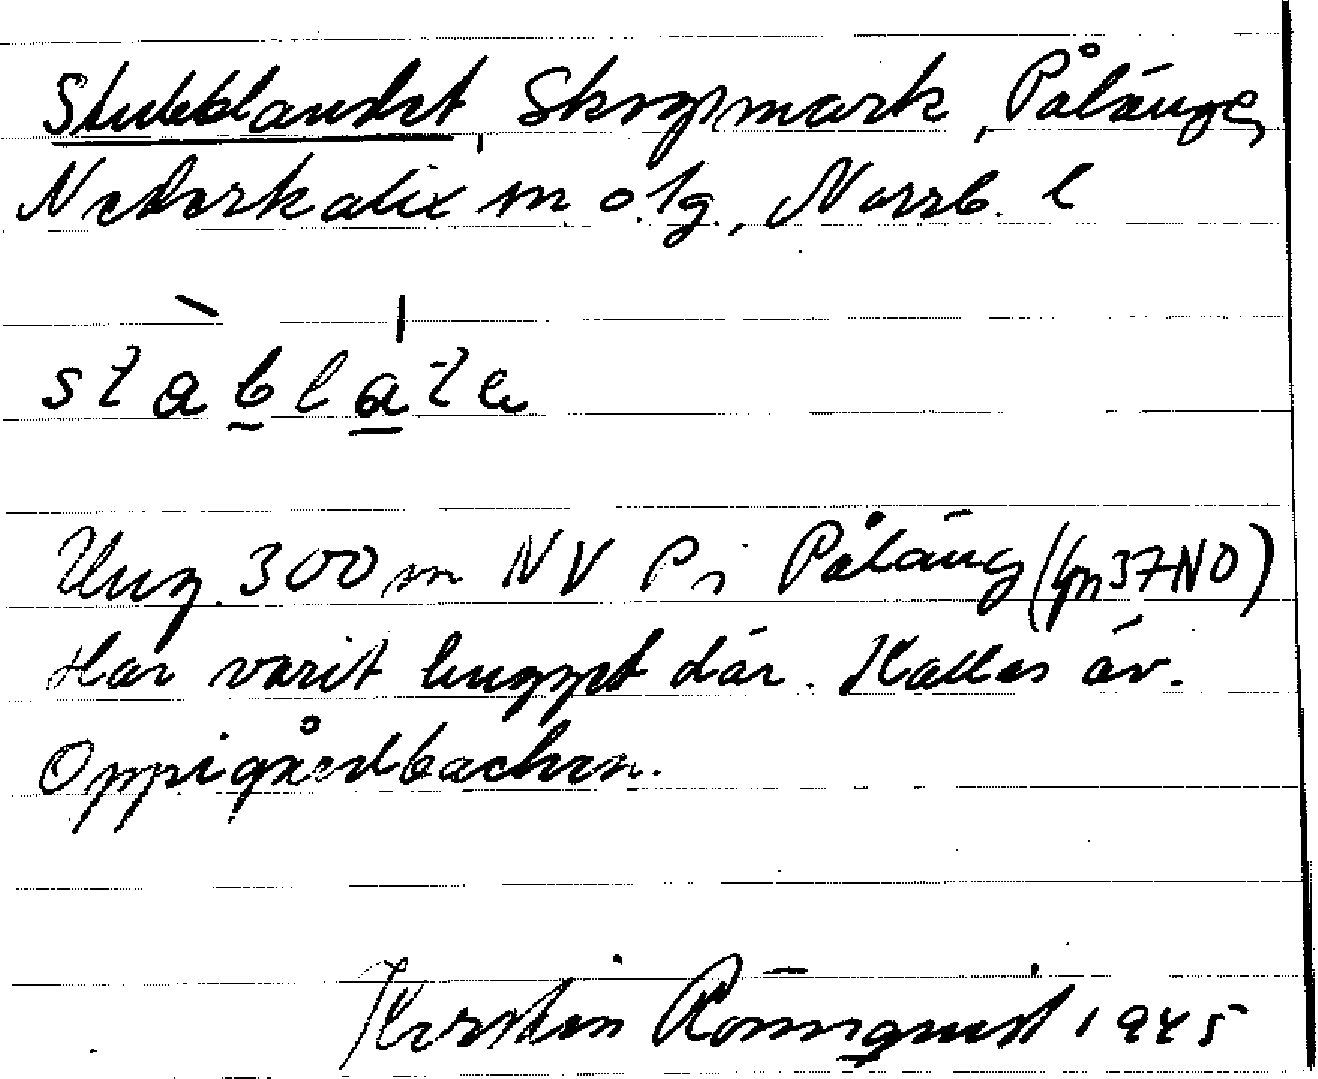 Stubblandet, Skogsmark, Pålänge,
Nederkalix sn o. tg., Norrb. l
Ung. 300 m NV P i Påläng (Gn 37 NO)
Har varit hugget där. Kallas äv.
Oppigårdbacken.
Kerstin Rönnqvist 1945